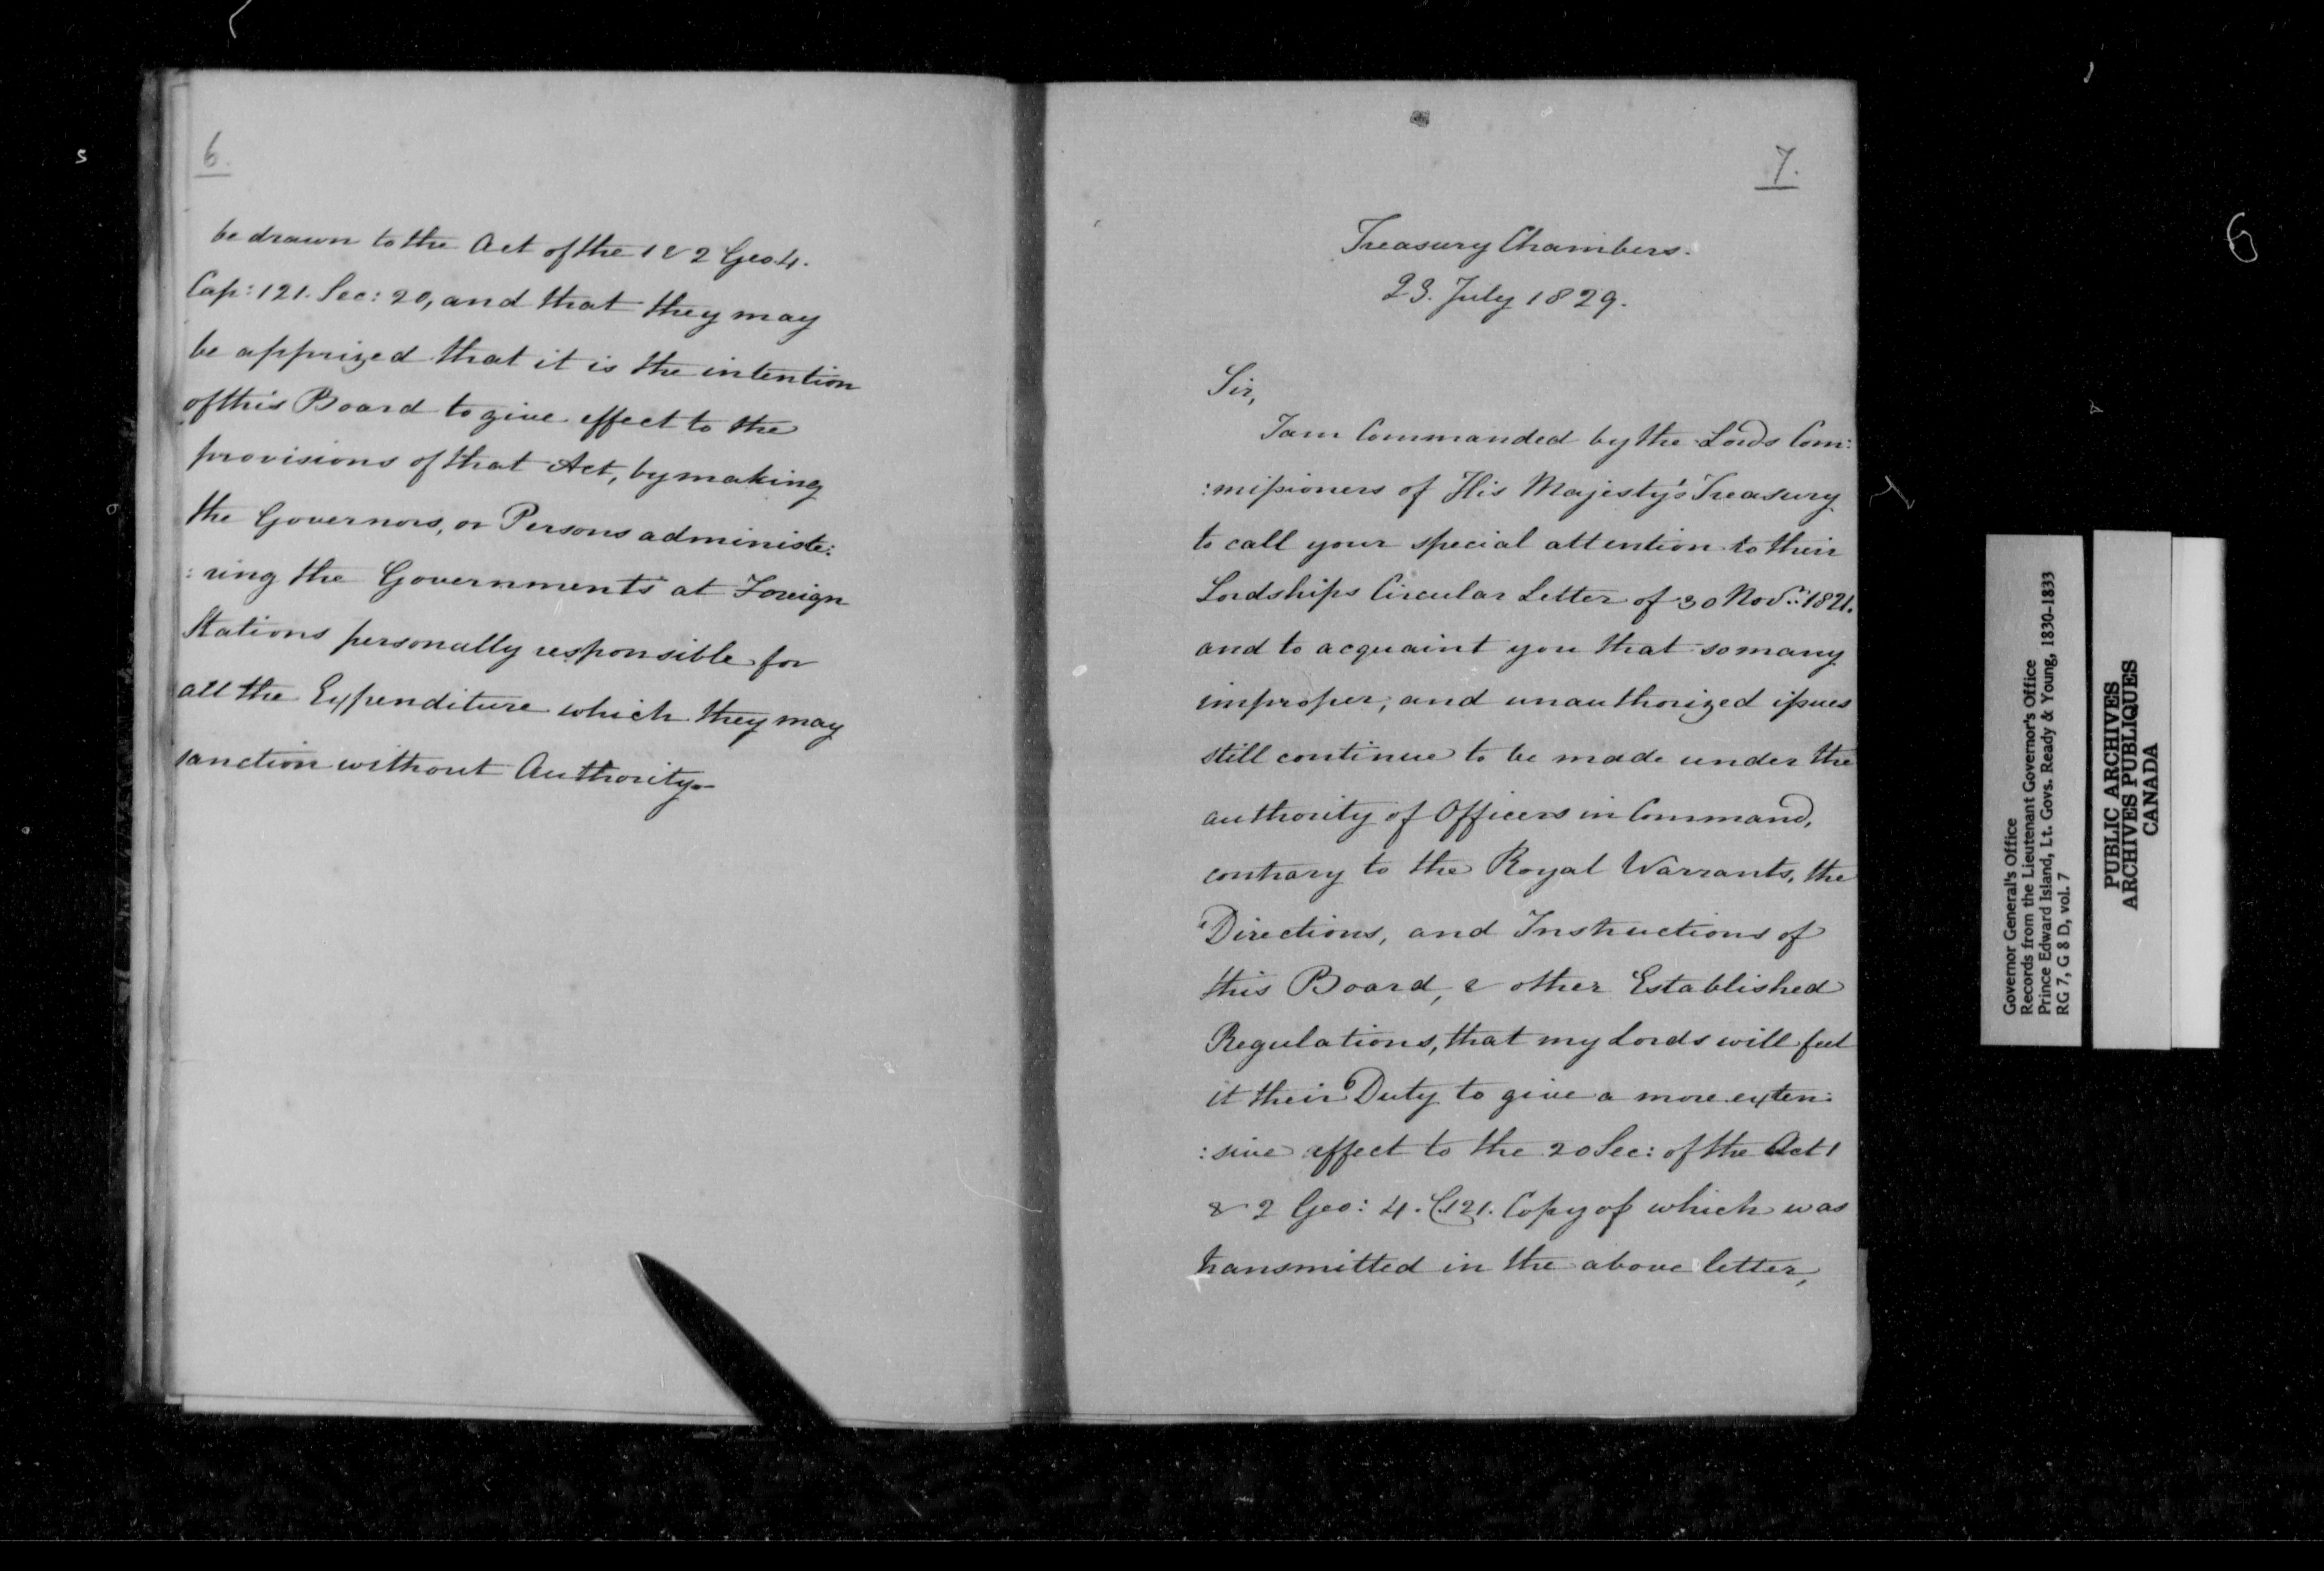 6.
be drawn to the Act of the 1 & 2 Geo. 4.
Cap: 121. Sec: 20, and that they may
be apprized that it is the intention
of this Board to give effect to the
provisions of that Act, by making
the Governors, or Persons administe:
:ring the Governments at Foreign
Stations personally responsible for
all the Expenditure which they may
sanction without Authority.
7.
Treasury Chambers.
23. July 1829.
Sir,
I am Commanded by the Lords Com:
:missioners of His Majesty's Treasury
to call your special attention to their
Lordships Circular Letter of 30 Novr. 1821.
and to acquaint you that so many
improper, and unauthorized issues
still continue to be made under the
authority of Officers in Command,
contrary to the Royal Warrants, the
Directions, and Instructions of
this Board, & other Established
Regulations, that my Lords will feel
it their Duty to give a more exten:
:sive effect to the 20 Sec: of the Act 1
& 2 Geo: 4. C.121. Copy of which was
transmitted in the above letter,
6
Governor General's Office
Records from the Lieutenant Governor's Office
Prince Edward Island, Lt. Govs. Ready & Young, 1830-1833
RG 7, G 8 D, vol. 7
PUBLIC ARCHIVES
ARCHIVES PUBLIQUES
CANADA